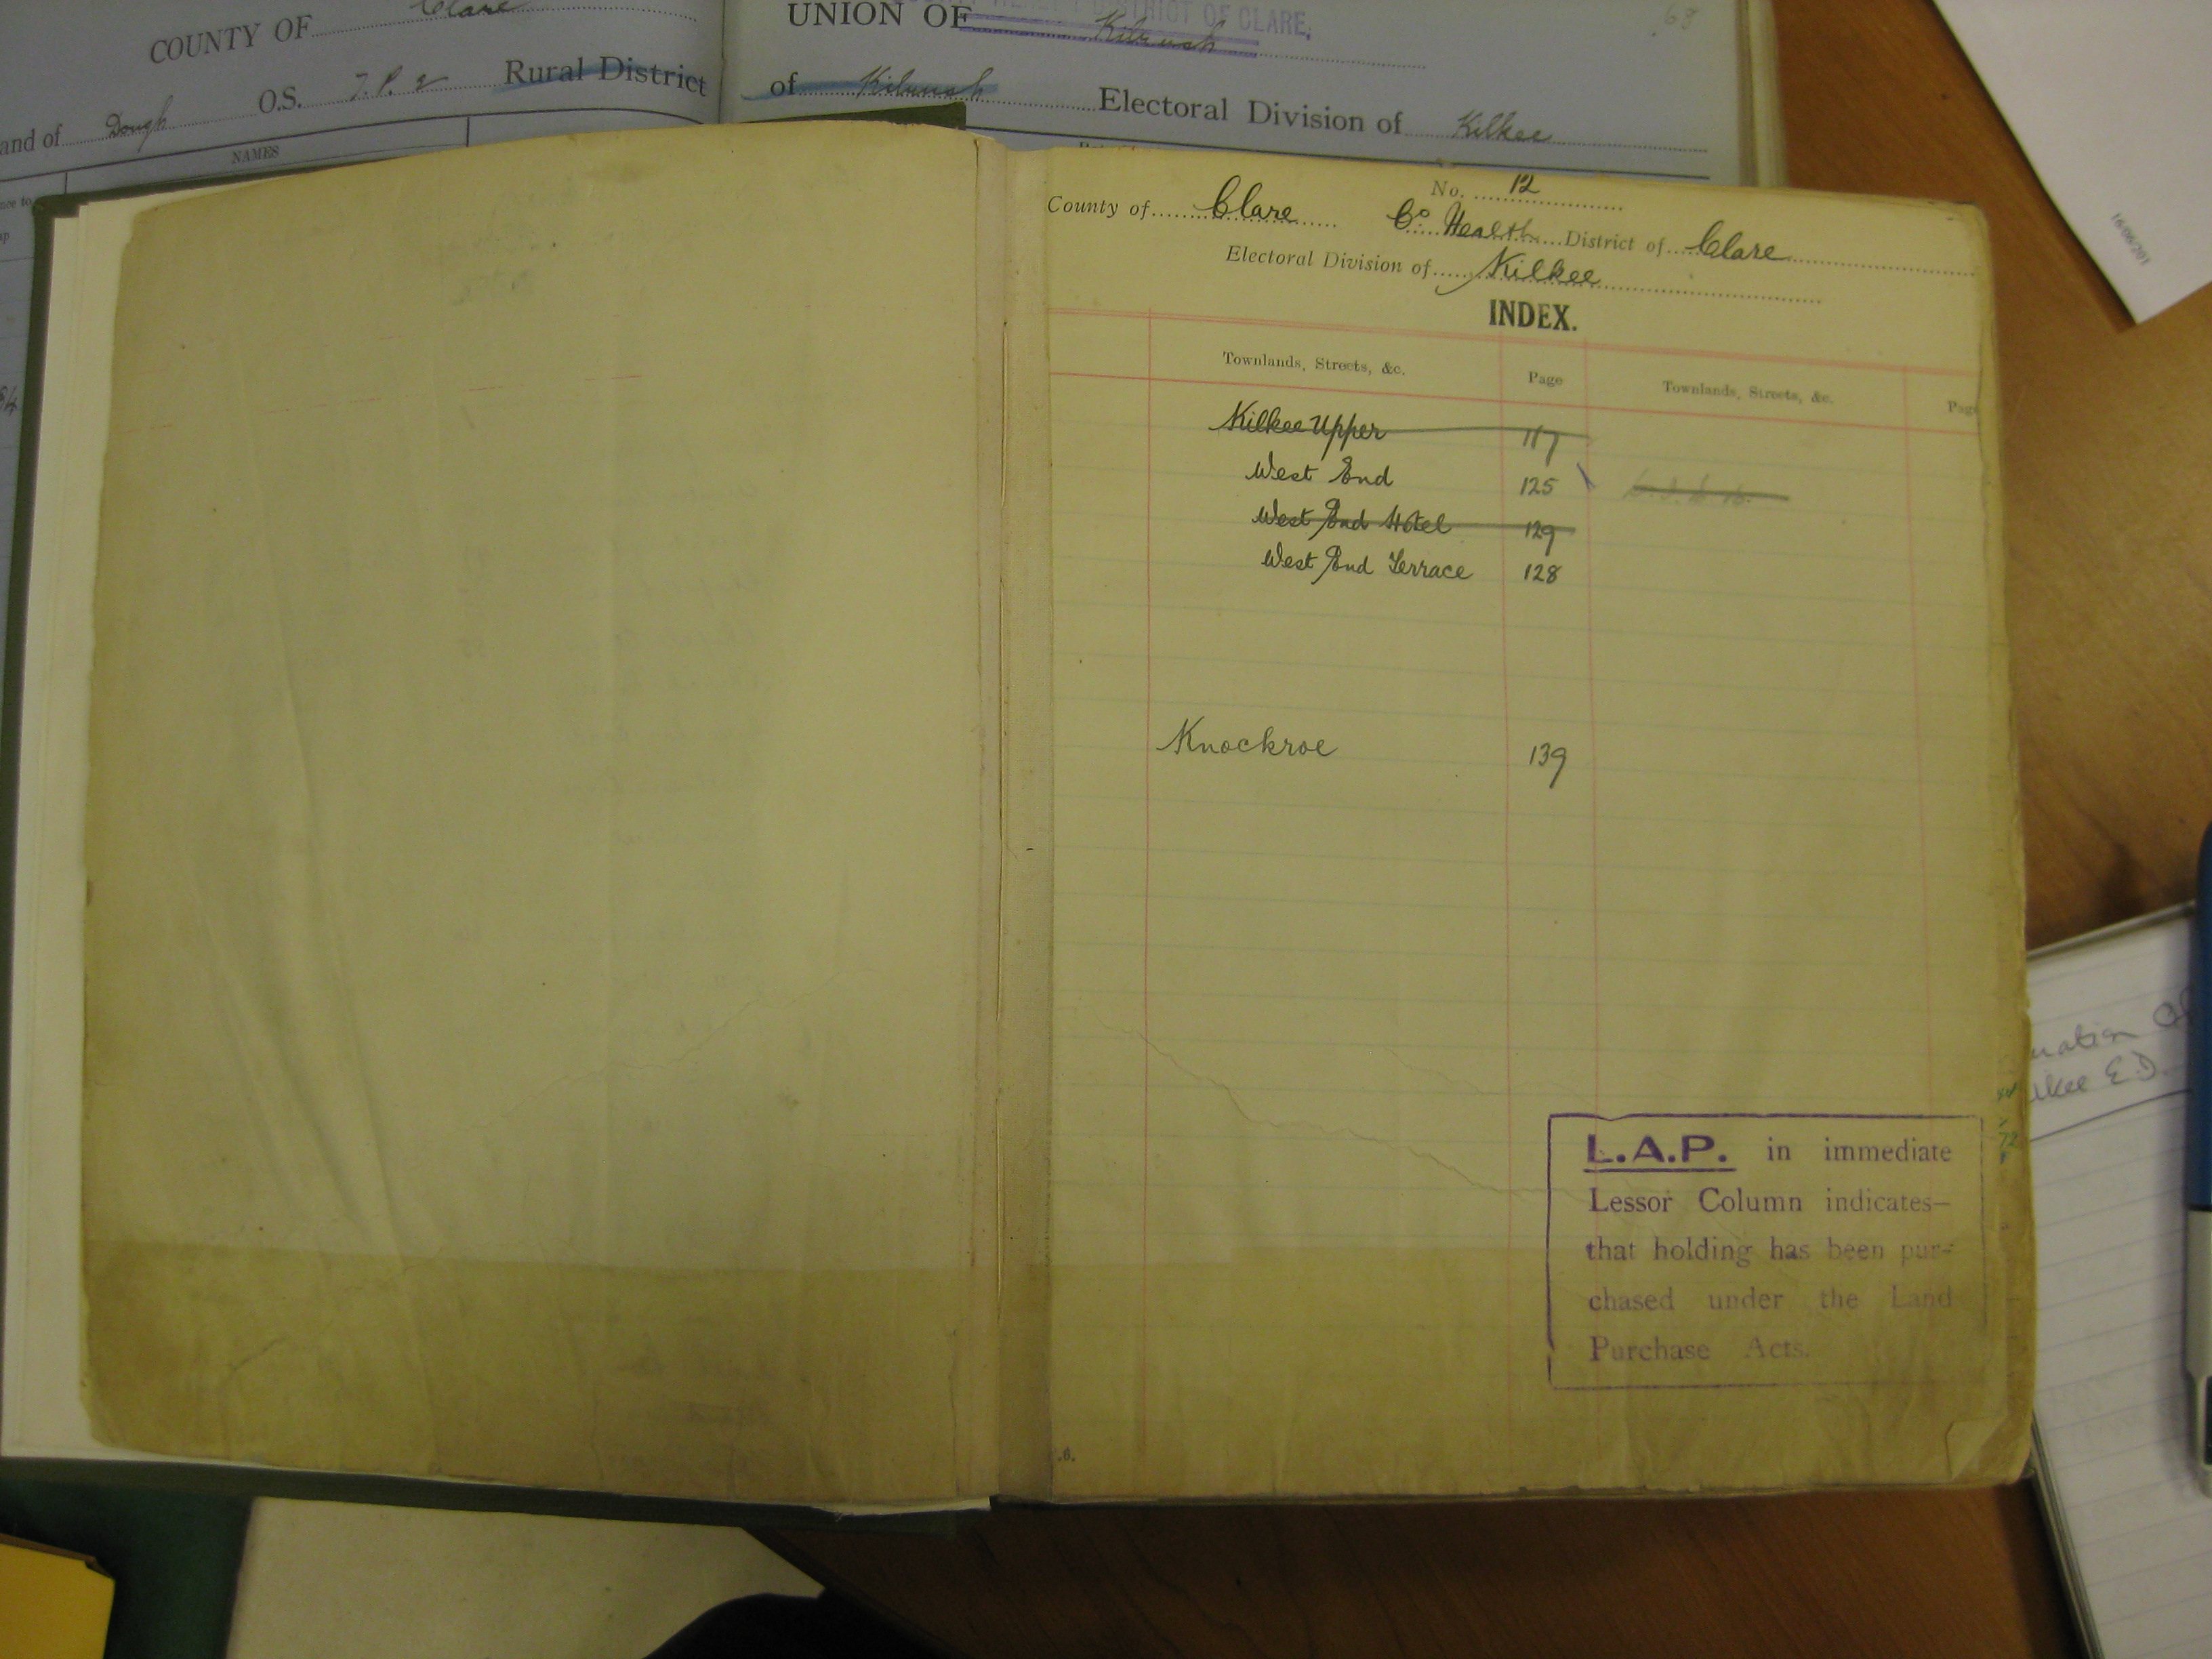 COUNTY OF Clare
O.S. 7.P.2 Rural District
and of Dough
NAMES
UNION OF Kilrush
DISTRICT OF CLARE.
68
of Kilrush Electoral Division of Kilkee
No. 12
County of Clare Co Health District of Clare
Electoral Division of Kilkee
INDEX.
Townlands, Streets, &c. Page Townlands, Streets, &c. Page
Kilkee Upper 117
West End 125
West End Hotel 129
West End Terrace 128
Knockroe 139
L.A.P. in immediate
Lessor Column indicates—
that holding has been pur-
chased under the Land
Purchase Acts.
uation of
lkee E.D.
72